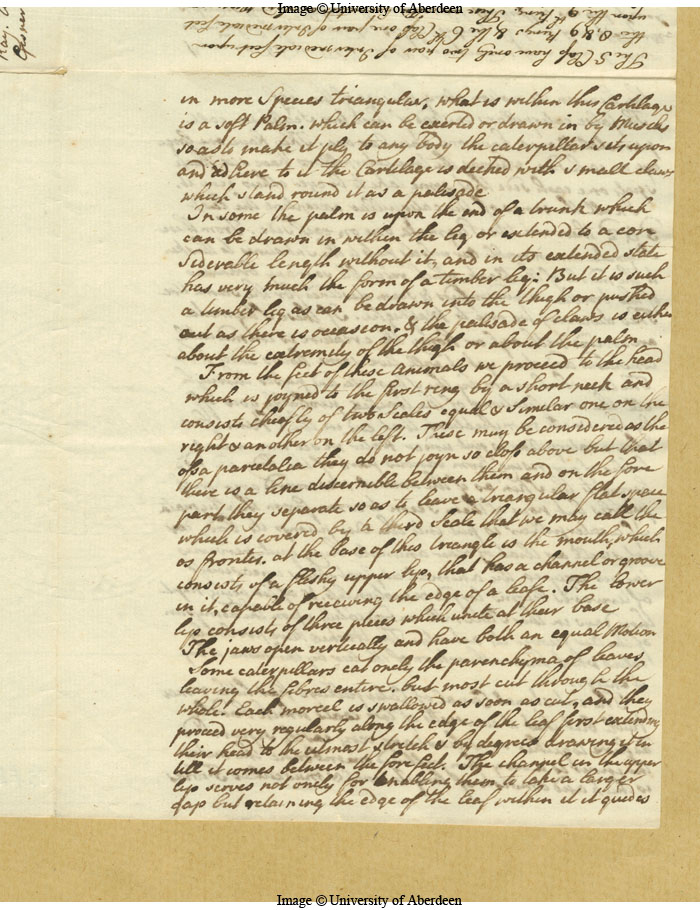 Image © University of Aberdeen
The S. Clap have only two pair of Intermediate feet upon
the 8 & 9 Rings & the 6th Clap one pair of Intermediate feet
upon the 9th Ring. These
Ray.
in more Species triangular, what is within this Cartilage
is a soft Palm. which can be exerted or drawn in by Muscles
so as to make it ply to any body the caterpillar sets upon
and adhere to it the Cartilage is decked with small claws
which stand round it as a palisade
In some the palm is upon the end of a trunk which
can be drawn in within the leg or extended to a con
siderable length without it, and in its extended state
has very much the form of a timber leg: But it is such
a timber leg as can be drawn into the thigh or pushed
out as there is occasion. & the palisade of claws is either
about the extremity of the thigh or about the palm
From the feet of these animals we proceed to the head
which is joyned to the first ring by a short neck and
consists chiefly of two Scales equal & Similar one on the
right & another on the left. These may be considered as the
ossa parietalia they do not joyn so close above but that
there is a line discernible between them and on the fore
part they separate so as to leave a triangular flat space
which is covered by a third Scale that we may call the
os frontis. at the base of this triangle is the mouth, which
consists of a fleshy upper lip, that has a channel or groove
in it, capable of receiving the edge of a leafe. The lower
lip consists of three pieces which unite at their base
The jaws open vertically and have both an equal Motion
Some caterpillars eat onely the parenchyma of leaves
leaving the fibres entire. but most cut through the
whole. Each morcel is swallowed as soon as cut, and they
proceed very regularly along the edge of the leaf first extending
their head to the utmost stretch & by degrees drawing it in
till it comes between the fore feet. The channel in the upper
lip serves not onely for enabling them to take a larger
gap but retaining the edge of the leaf within it it guides
Image © University of Aberdeen